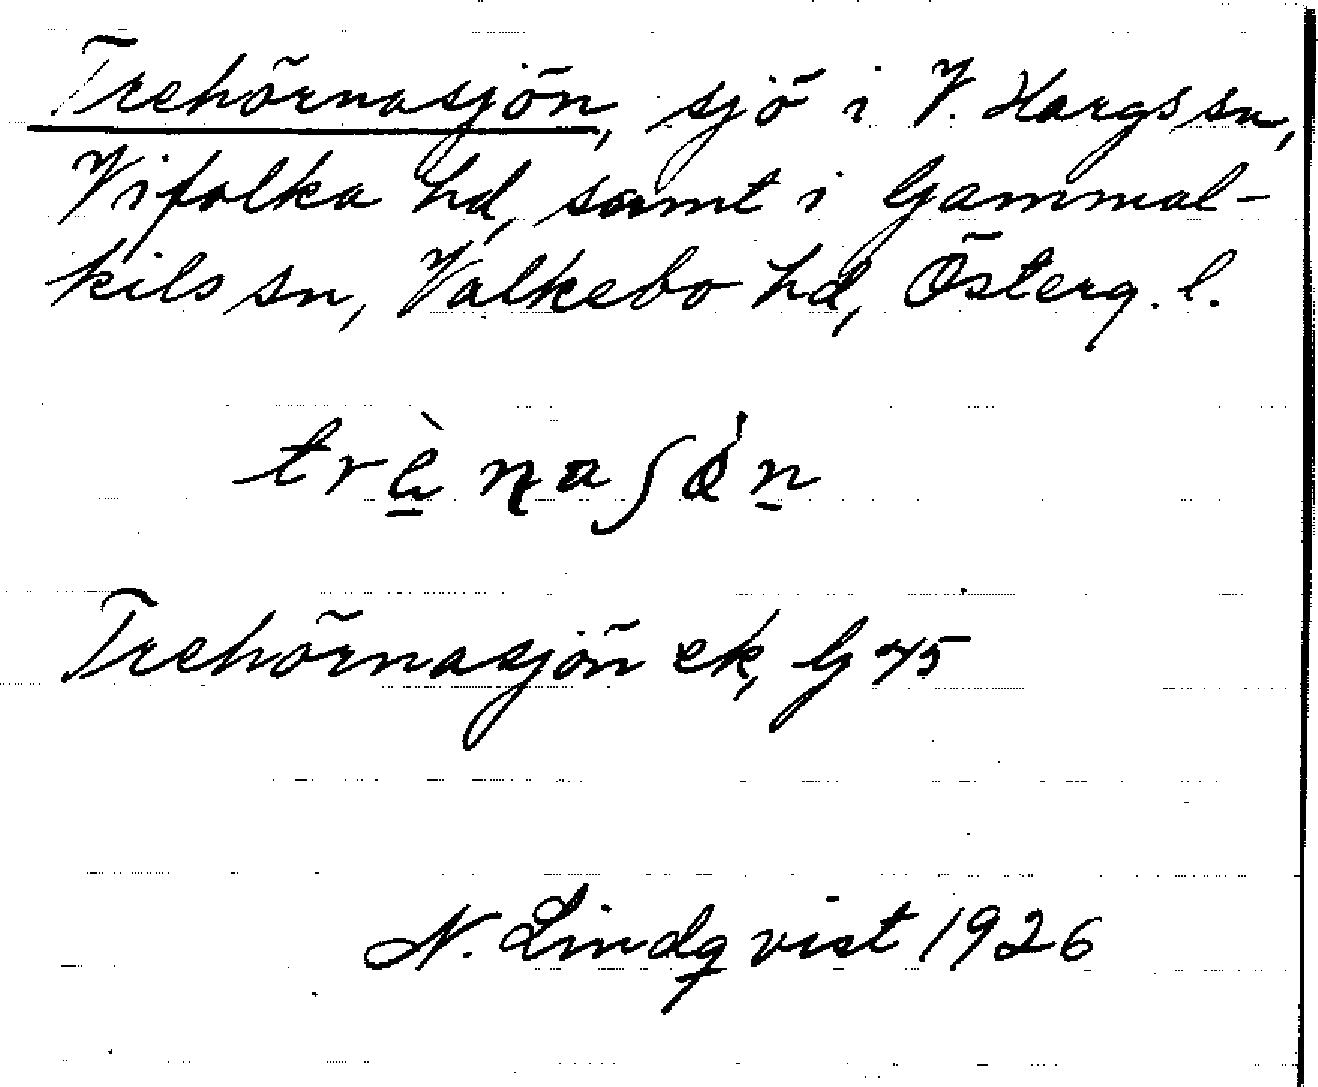 Trehörnasjön, sjö i V. Hargs sn,
Vifolka hd, samt i Gammal-
kils sn, Valkebo hd, Österg. l.
Trehörnasjön ek, G 45
N. Lindqvist 1926